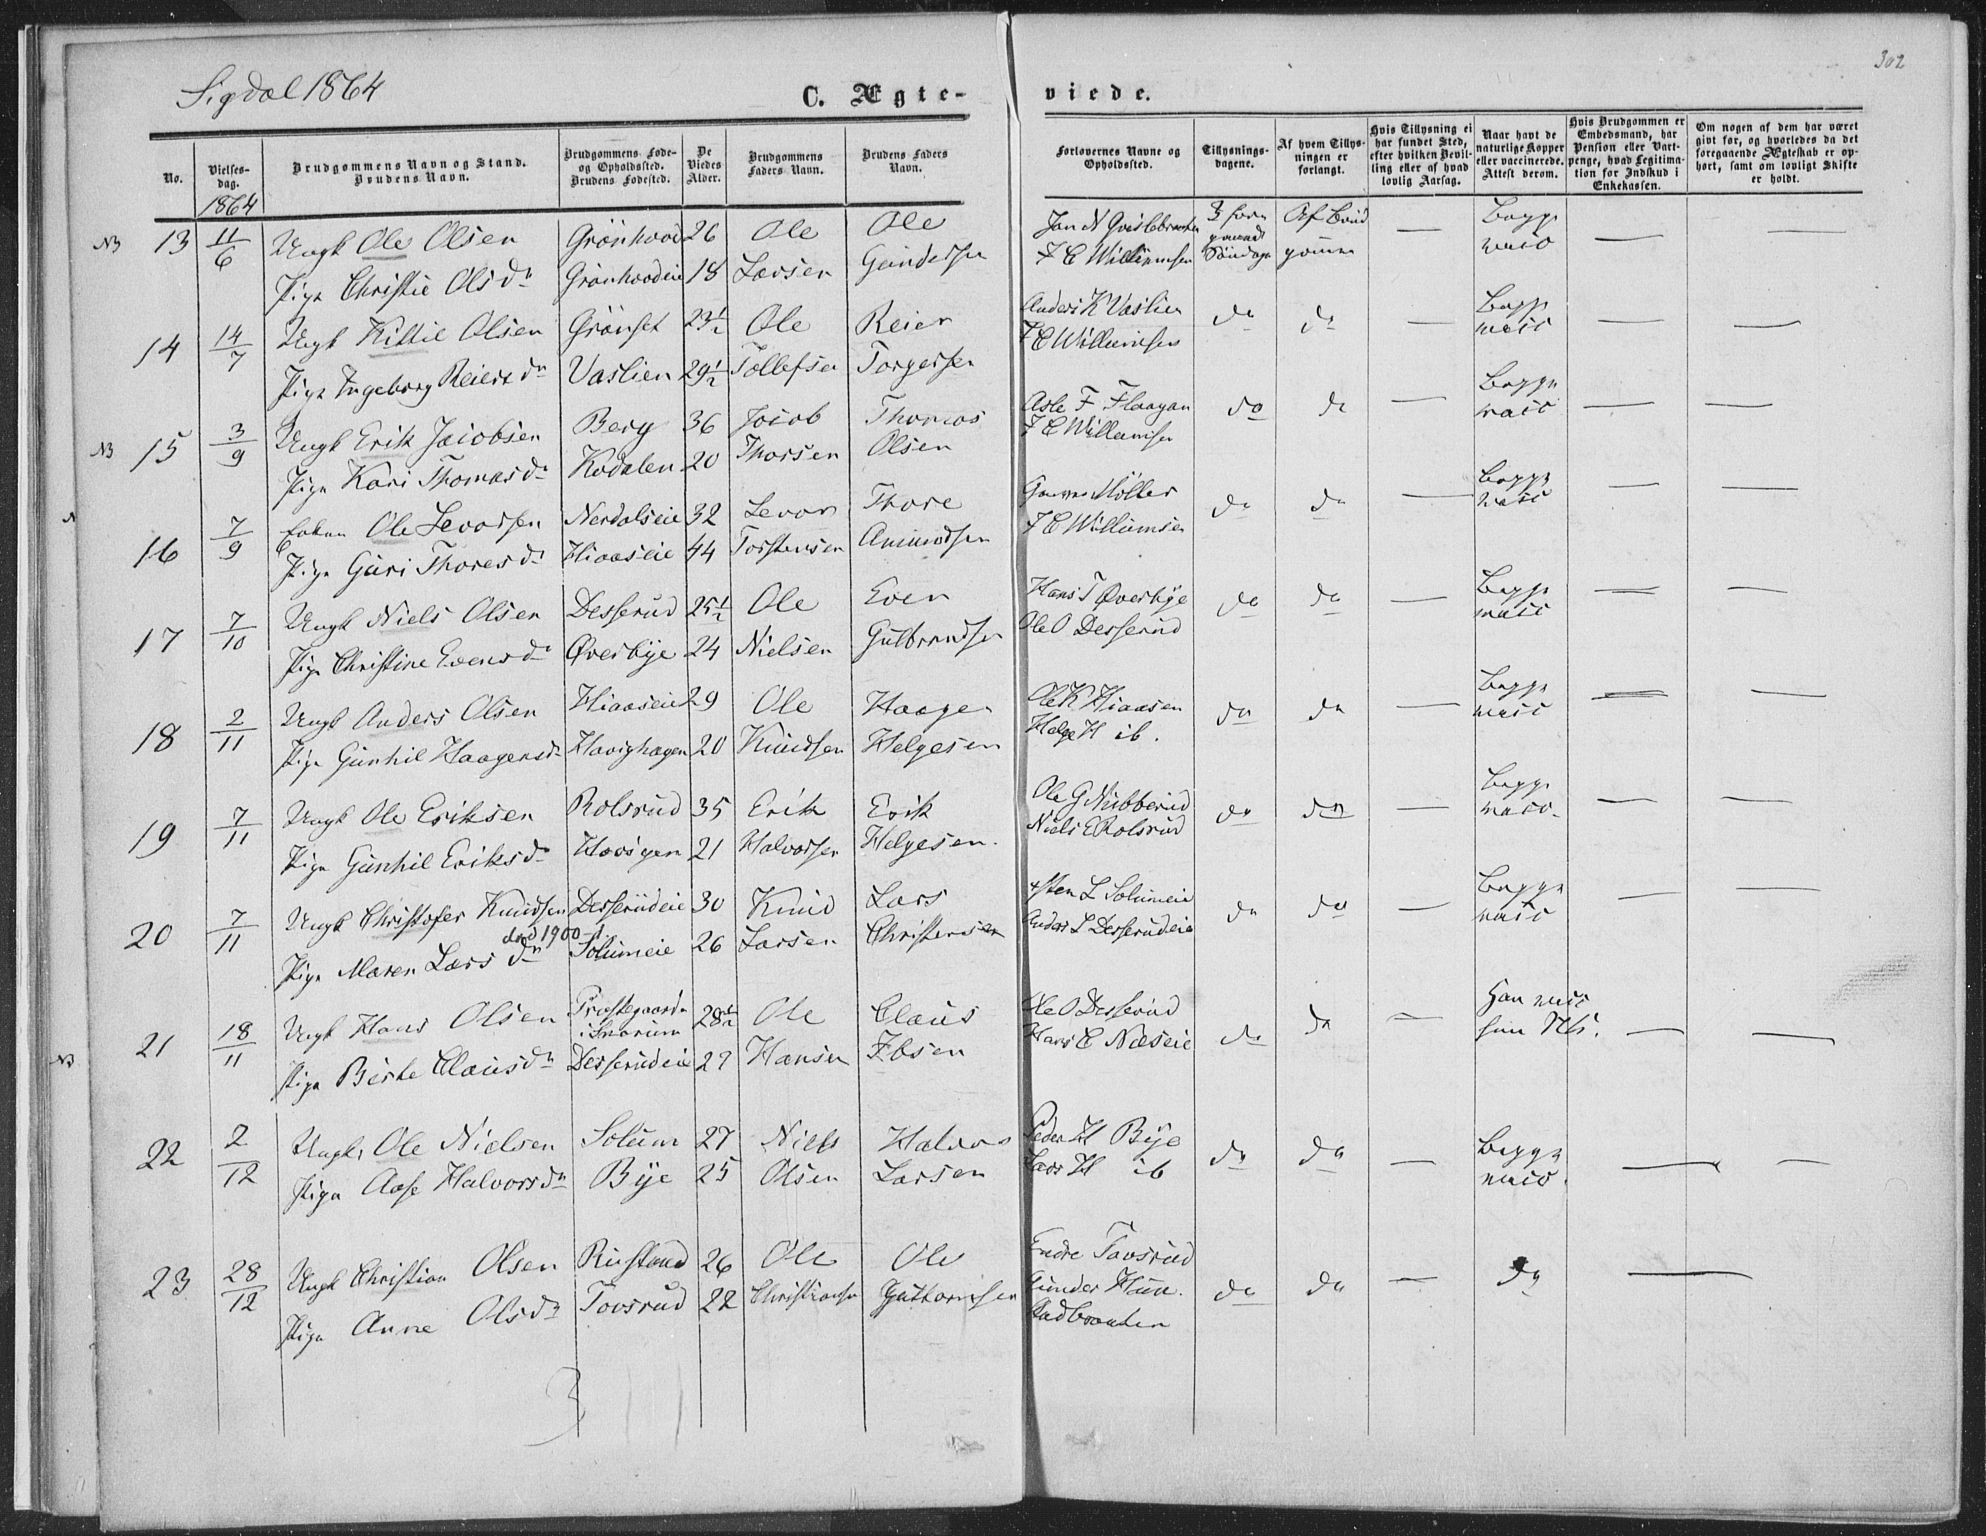 302
Sigdal 1864
C. Ægte-
viede.
No.
Vielses-
dag.
1864
Brudgommens Navn og Stand.
Brudens Navn.
Brudgommens Føde-
og Opholdssted.
Brudens Fødested.
De
Viedes
Alder.
Brudgommens
Faders Navn.
Brudens Faders
Navn.
Forlovernes Navne og
Opholdssted.
Tillysnings-
dagene.
Af hvem Tillys-
ningen er
forlangt.
Hvis Tillysning ei
har fundet Sted,
efter hvilken Bevil-
ling eller af hvad
lovlig Aarsag.
Naar havt de
naturlige Kopper
eller vaccinerede.
Attest derom.
Hvis Brudgommen er
Embedsmand, har
Pension eller Vart-
penge, hvad Legitima-
tion for Indskud i
Enkekassen.
Om nogen af dem har været
givt før, og hvorledes da det
foregaaende Ægteskab er op-
hørt, samt om lovligt Skifte
er holdt.
NB 13 11/6 Ungk Ole Olsen Grønhovd 26 Ole Ole 3 fore Af Brud Begge
Pige Christie Olsdr Grønhovdeie 18 Larsen Gundersen J E Willumsen Søndage gommen vacc
14 14/7 Ungk Kittil Olsen Grønset 23½ Ole Reier Anders K Vaslien do do Begge
Pige Ingeborg Reiersdr Vaslien 29½ Tollefsen Torgersen J E Willumsen vacc
NB 15 3/9 Ungk Erik Jacobsen Berg 36 Jacob Thomas Asle F Flaagan do do Begge
Pige Kari Thomasdr Kodalen 20 Thorsen Olsen J E Willumsen vacc
16 7/9 Ole Levorsen Nerdalseie 32 Levor Thore Møller do do Begge
Pige Guri Thoresdr Hiaaseie 44 Torstensen Amundsen J E Willumsen vacc
17 7/10 Ungk Niels Olsen Desserud 25½ Ole Even Hans T Øverbye do do Begge
Pige Christine Evensdr Øverbye 24 Nielsen Gulbrandsen Ole O Desserud vacc
18 2/11 Ungk Anders Olsen Hiaaseie 29 Ole Haagen Ole K Hiaasen do do Begge
Pige Gunhil Haagensdr Havighagen 20 Knudsen Helgesen Helge H ib. vacc
19 7/11 Ungk Ole Eriksen Rolsrud 35 Erik Erik Ole G Nubberud do do Begge
Pige Gunhil Eriksdr 21 Halvorsen Helgesen. Niels E Rolsrud vacc.
20 7/11 Ungk Christofer Knudsen Desserudeie 30 Knud Lars Sten L Solumeie do do Begge
død 1900
Pige Maren Larsdr Solumeie 26 Larsen Christensen Anders L Desserudeie vacc
21 18/11 Ungk Hans Olsen Præstegaarden i Snarum 28½ Ole Claus Ole O Desserud do do Han vacc
NB Pige Berte Clausdr Desserudeie 27 Hansen Ebsen Hans C Næseie hun
22 2/12 Ungk. Ole Nielsen Solum 27 Niels Halvor Peder H Bye do do Begge
Pige Aase Halvorsdr Bye 25 Olsen Larsen Lars H ib vacc.
23 28/12 Ungk Christian Olsen Rustand 26 Ole Ole Endre Tovsrud do do do
Pige Anne Olsdr Tovsrud 22 Christiansen Guttormsen Gunder Hun.
Radbraaten
3